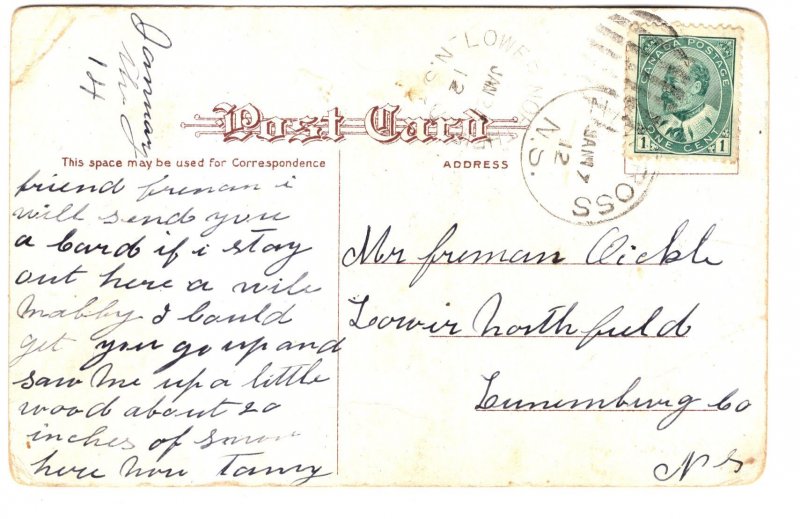 January
the
14
Post Card
This space may be used for Correspondence
ADDRESS
friend freman i
will send you
a Card if i stay
out here a wile
mabby I Could
get you go up and
saw me up a little
wood about 20
inches of snow
here now Tanny
Mr freman Oickle
Lowir Northfield
Lunemburg Co
N s
LOWER NOR
N.S.
JAN
12
ROSS
JAN 7
12
N.S.
CANADA POSTAGE
1 ONE CENT 1